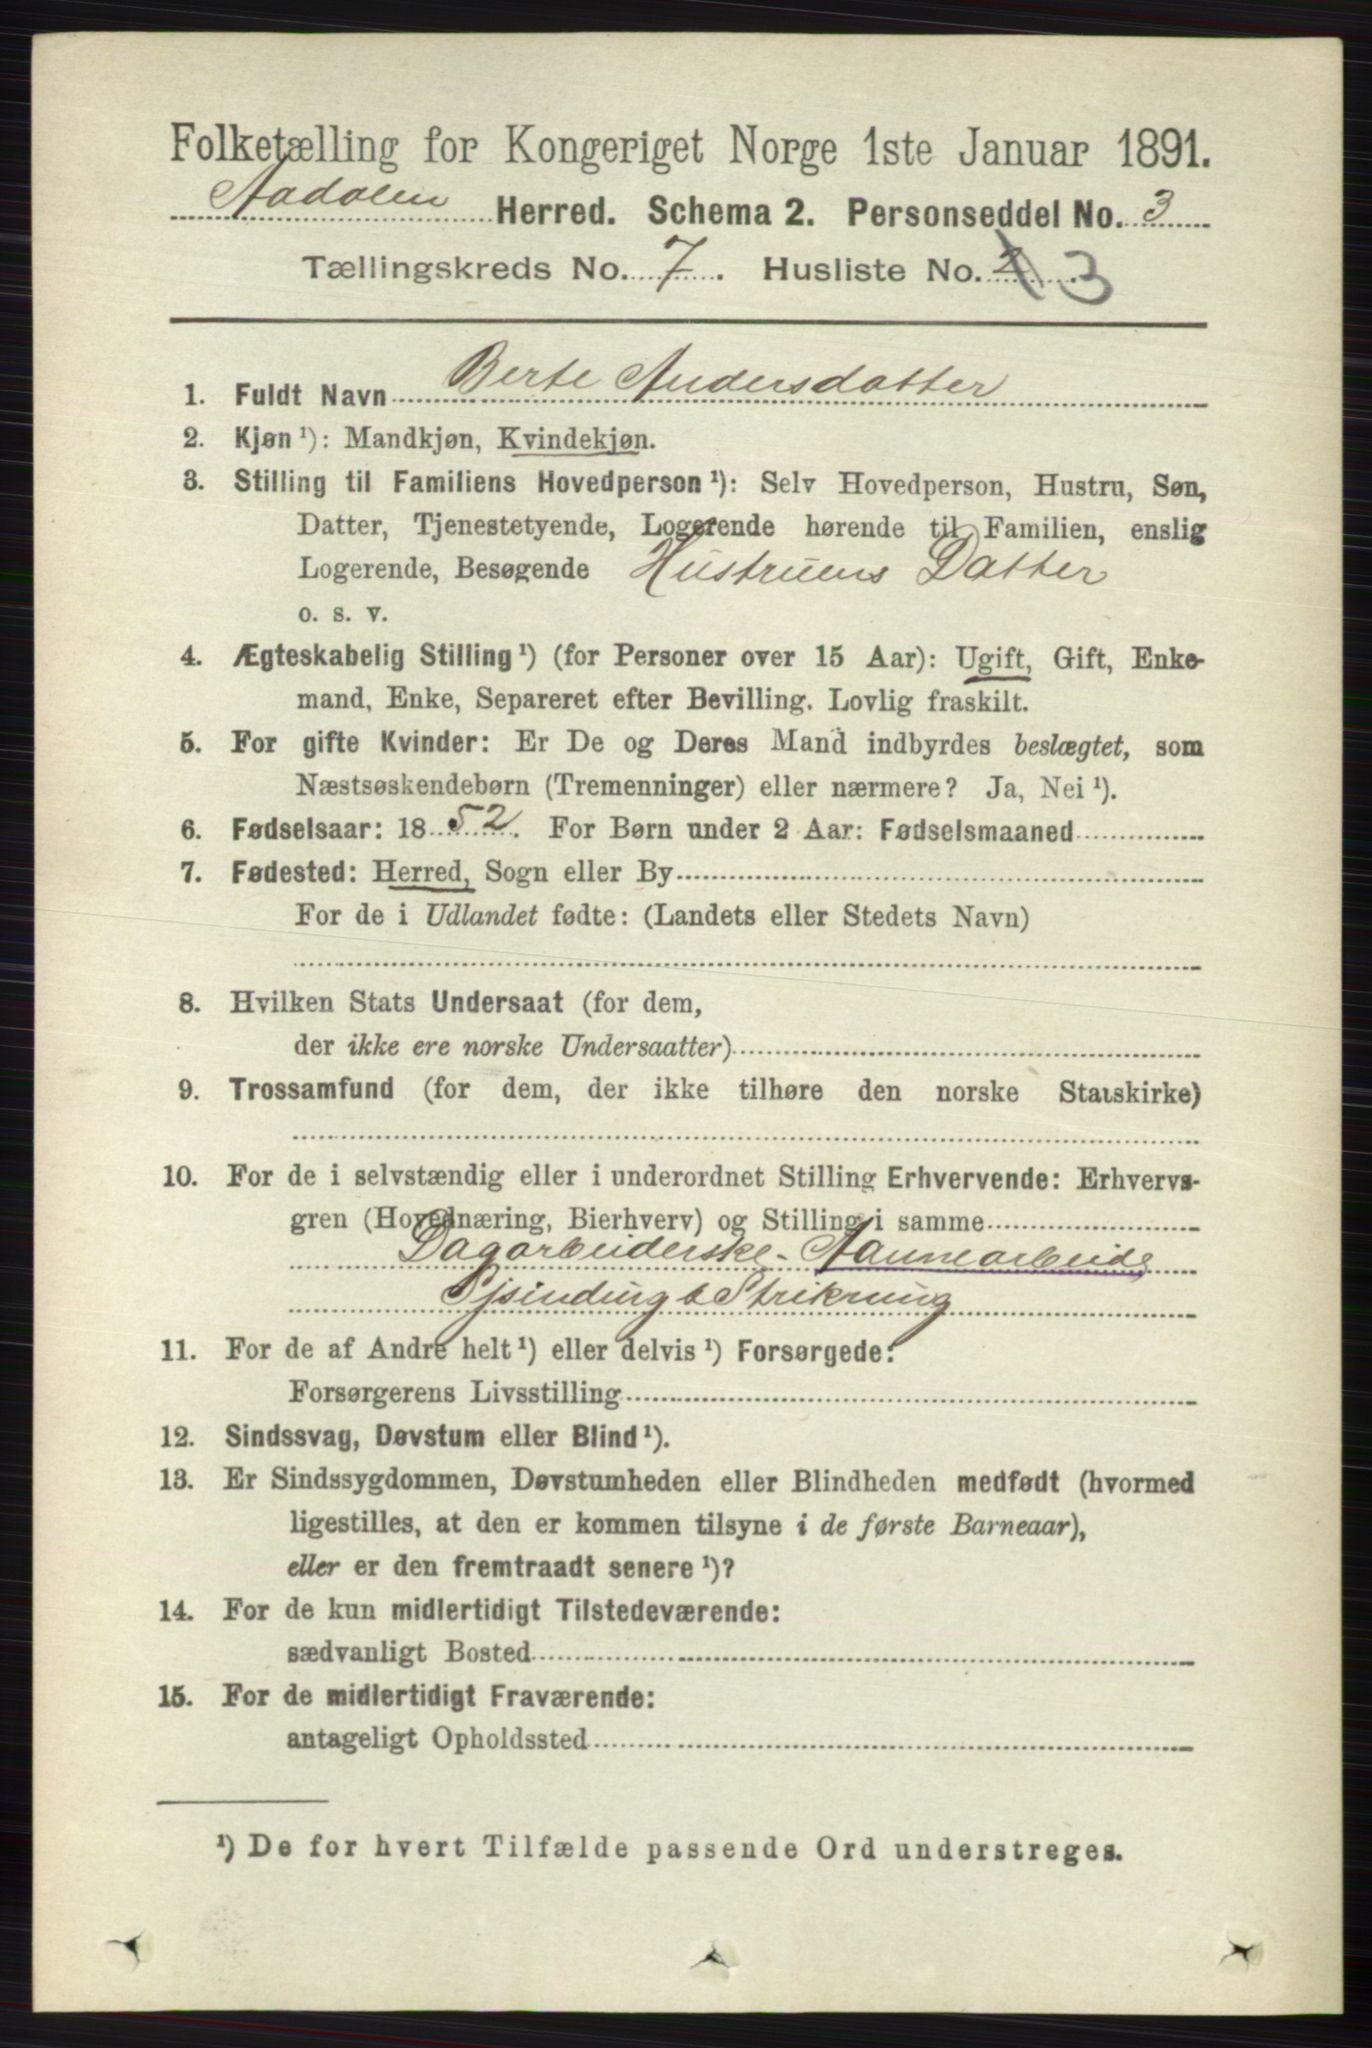 Folketælling for Kongeriget Norge 1ste Januar 1891.
Aadalen Herred. Schema 2. Personseddel No. 3
Tællingskreds No. 7. Husliste No. 2. 3
1. Fuldt Navn Berte Andersdatter
2. Kjøn ¹): Mandkjøn, Kvindekjøn.
3. Stilling til Familiens Hovedperson ¹): Selv Hovedperson, Hustru, Søn,
Datter, Tjenestetyende, Logerende hørende til Familien, enslig
Logerende, Besøgende Hustruens Datter
o. s. v.
4. Ægteskabelig Stilling ¹) (for Personer over 15 Aar): Ugift, Gift, Enke-
mand, Enke, Separeret efter Bevilling. Lovlig fraskilt.
5. For gifte Kvinder: Er De og Deres Mand indbyrdes beslægtet, som
Næstsøskendebørn (Tremenninger) eller nærmere? Ja, Nei ¹).
6. Fødselsaar: 1852. For Børn under 2 Aar: Fødselsmaaned
7. Fødested: Herred, Sogn eller By
For de i Udlandet fødte: (Landets eller Stedets Navn)
8. Hvilken Stats Undersaat (for dem,
der ikke ere norske Undersaatter)
9. Trossamfund (for dem, der ikke tilhøre den norske Statskirke)
10. For de i selvstændig eller i underordnet Stilling Erhvervende: Erhvervs-
gren (Hovednæring, Bierhverv) og Stilling i samme
Dagarbeiderske - Aannearbeide
& Strikning
11. For de af Andre helt ¹) eller delvis ¹) Forsørgede:
Forsørgerens Livsstilling
12. Sindssvag, Døvstum eller Blind ¹).
13. Er Sindssygdommen, Døvstumheden eller Blindheden medfødt (hvormed
ligestilles, at den er kommen tilsyne i de første Barneaar),
eller er den fremtraadt senere ¹)?
14. For de kun midlertidigt Tilstedeværende:
sædvanligt Bosted
15. For de midlertidigt Fraværende:
antageligt Opholdssted
¹) De for hvert Tilfælde passende Ord understreges.